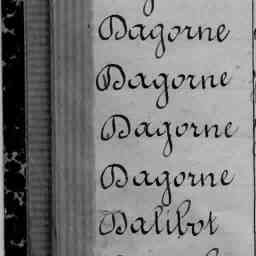 Dagorne
Dagorne
Dagorne
Dagorne
Dalibot